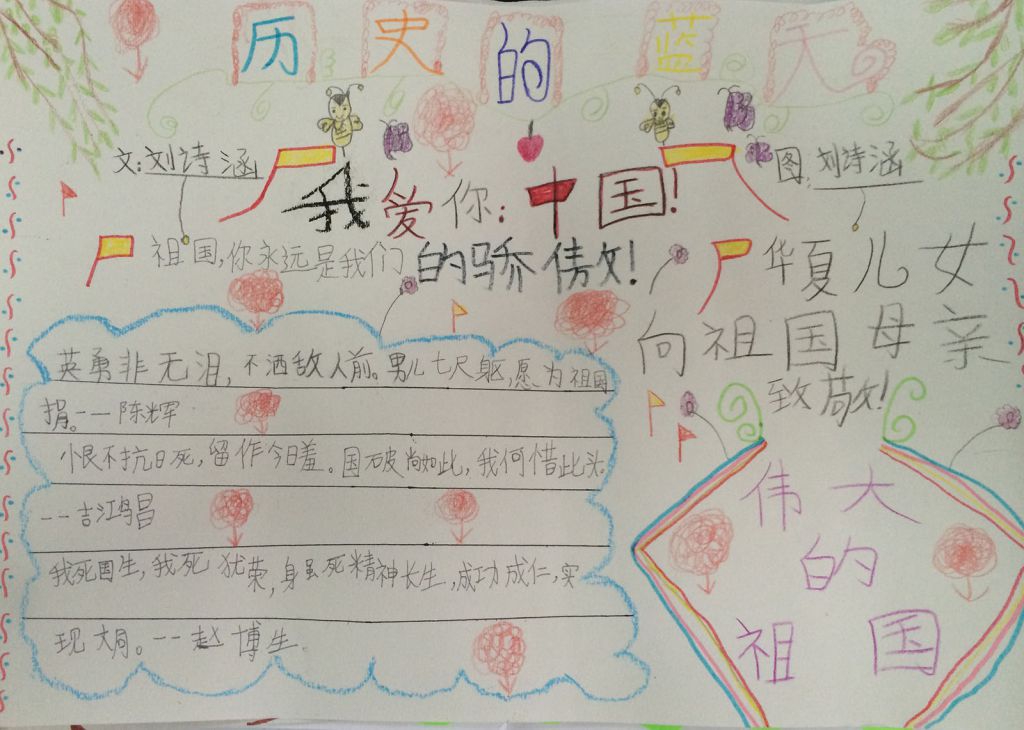 历史的蓝天
文:刘诗涵
图:刘诗涵
我爱你:中国!
祖国,你永远是我们的骄傲!
华夏儿女
向祖国母亲
致敬!
英勇非无泪,不洒敌人前。男儿七尺躯,愿为祖国
捐。--陈辉
恨不抗日死,留作今日羞。国破尚如此,我何惜此头
--吉鸿昌
我死国生,我死犹荣,身虽死精神长生,成功成仁,实
现大同。--赵博生.
伟大
的
祖国